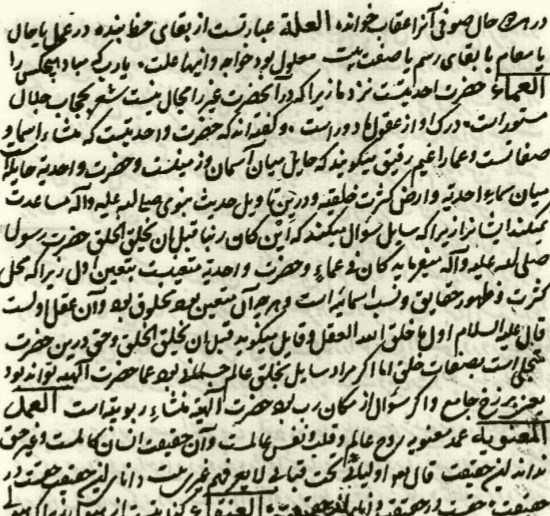 در هر حال صوفی آنرا عقاب خوانده العلة عبارتست از بقای حظ بنده در عمل یا حال
یا مقام یا بقای رسم یا صفت معلول بود خواجه و انبها علت یارب که مباد هیچکس را
العماء حضرت احدیتست نزد ما زیرا که در آنحضرت غیر را مجال نیست شعر بحجاب جلال
مستور است درک او از عقول ما دور است و گفته‌اند که حضرت واحدیتست که منشاء اسما و
صفاتست و عما را غیم رقیق میگویند که حایل میان آسمان و زمینست و حضرت واحدیة حایلة
میان سماء احدیة و ارض کثرت خلقیه و درین تاویل حدیث نبوی صلی الله علیه و آله مساعدت
نمیکند ایشانرا زیرا که سایل سوال میکند که این کان ربنا قبل ان یخلق الخلق حضرت رسول
صلی الله علیه و آله میفرماید کان فی عماء و حضرت واحدیة متعینست بتعین اول زیرا که محل
کثرت و ظهور حقایق و نسب اسمائیه است و هر چه آن متعین بود مخلوق بود و آن عقل اولست
قال علیه السلام اول ما خلق الله العقل و قایل میگوید قبل ان یخلق الخلق و حق درین حضرت
متجلی است بصفات خلق اما اگر مراد سایل بخلق عالم بود عما حضرت الهیه تواند بود
یعنی برزخ جامع و اگر سوال از مکان رب بود حضرت الهیة منشاء ربوبیة است العمد
المعنویه عمد معنویه روح عالم و قلب و نفس عالمست و آن حقیقت انسان کاملست و غیر حق
نداند این حقیقت قال هو اولیائی تحت قبابی لا یعرفهم غیری بیت دانای این حقیقت حقست در
حقیقت حقست در حقیقت دانای این حقیقت العنقاء